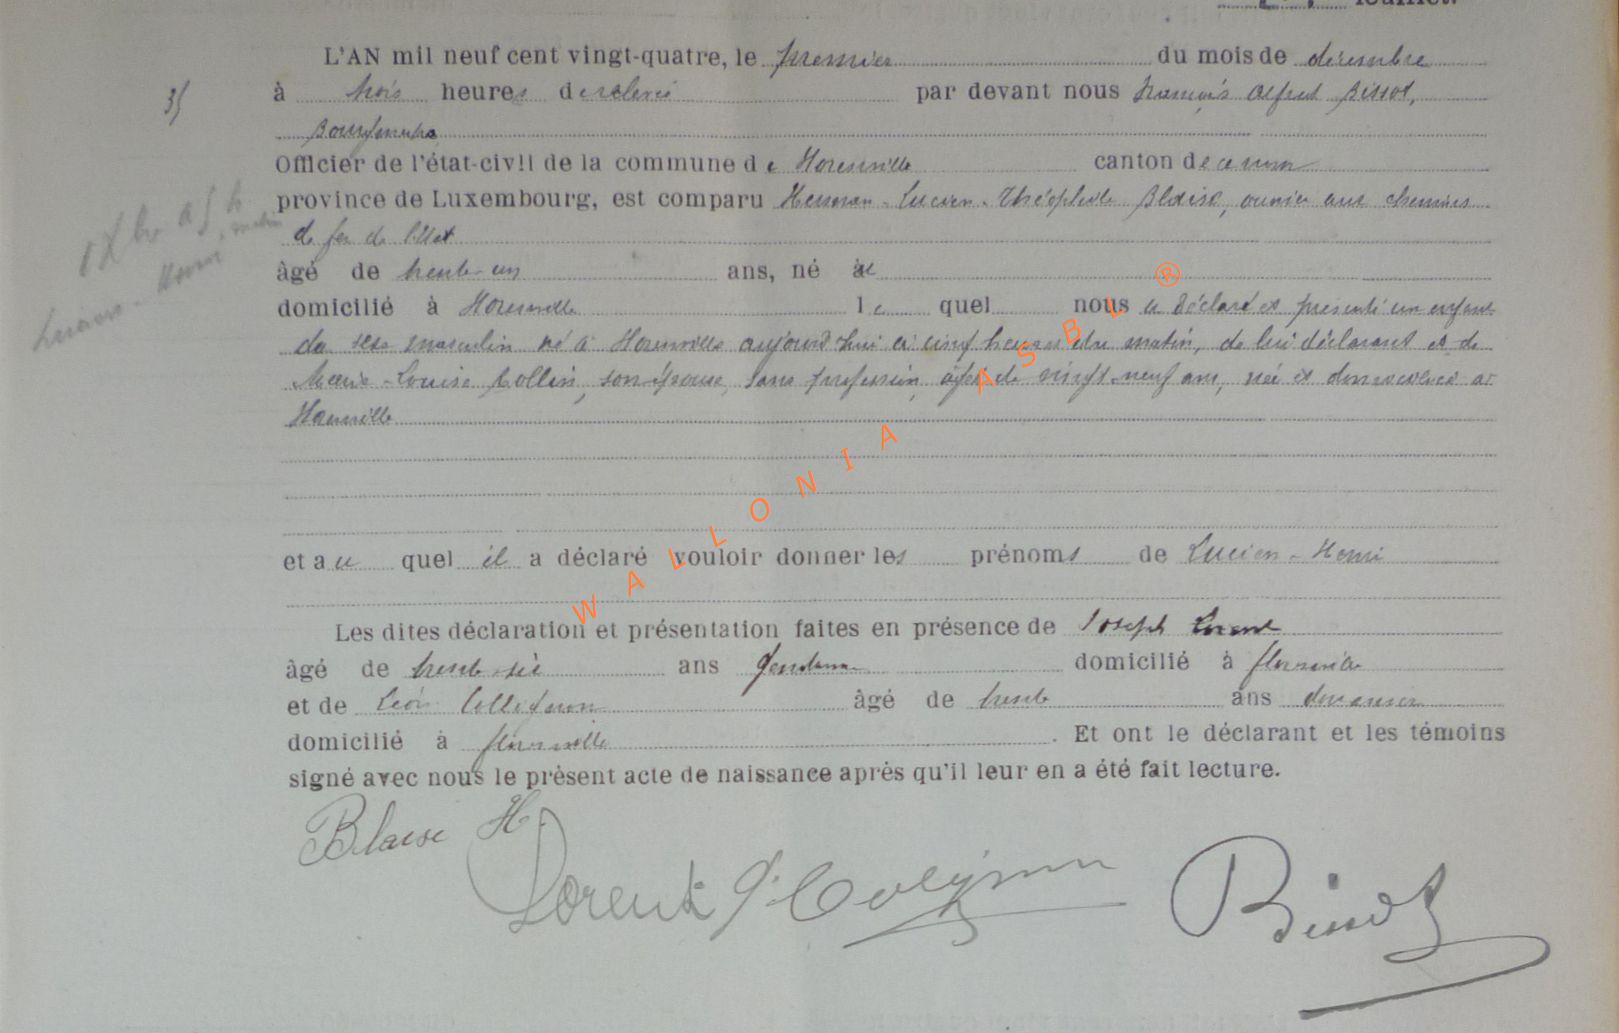 feuillet.
L'AN mil neuf cent vingt-quatre, le premier du mois de décembre
35
à trois heures de relevée par devant nous François Alfred Bissot,
Bourgmestre
Officier de l'état-civil de la commune de canton de ce nom
province de Luxembourg, est comparu Herman-Lucien-Théophile Blaise, ouvrier aux chemins
de fer de l'Etat
âgé de trente-un ans, né à
domicilié à lequel nous a déclaré et présenté un enfant
du sexe masculin né à aujourd'hui à cinq heures du matin, de lui déclarant et de
Marie-Louise Collin, son épouse, sans profession, âgée de vingt-neuf ans, née et domiciliée à
et au quel il a déclaré vouloir donner les prénoms de Lucien-Henri
Les dites déclaration et présentation faites en présence de Joseph Lorent
âgé de trente six ans gendarme domicilié à
et de Léon Collignon âgé de trente ans douanier
domicilié à . Et ont le déclarant et les témoins
signé avec nous le présent acte de naissance après qu'il leur en a été fait lecture.
Blaise H.
Lorent J. Colignon Bissot
WALLONIA ASBL ®